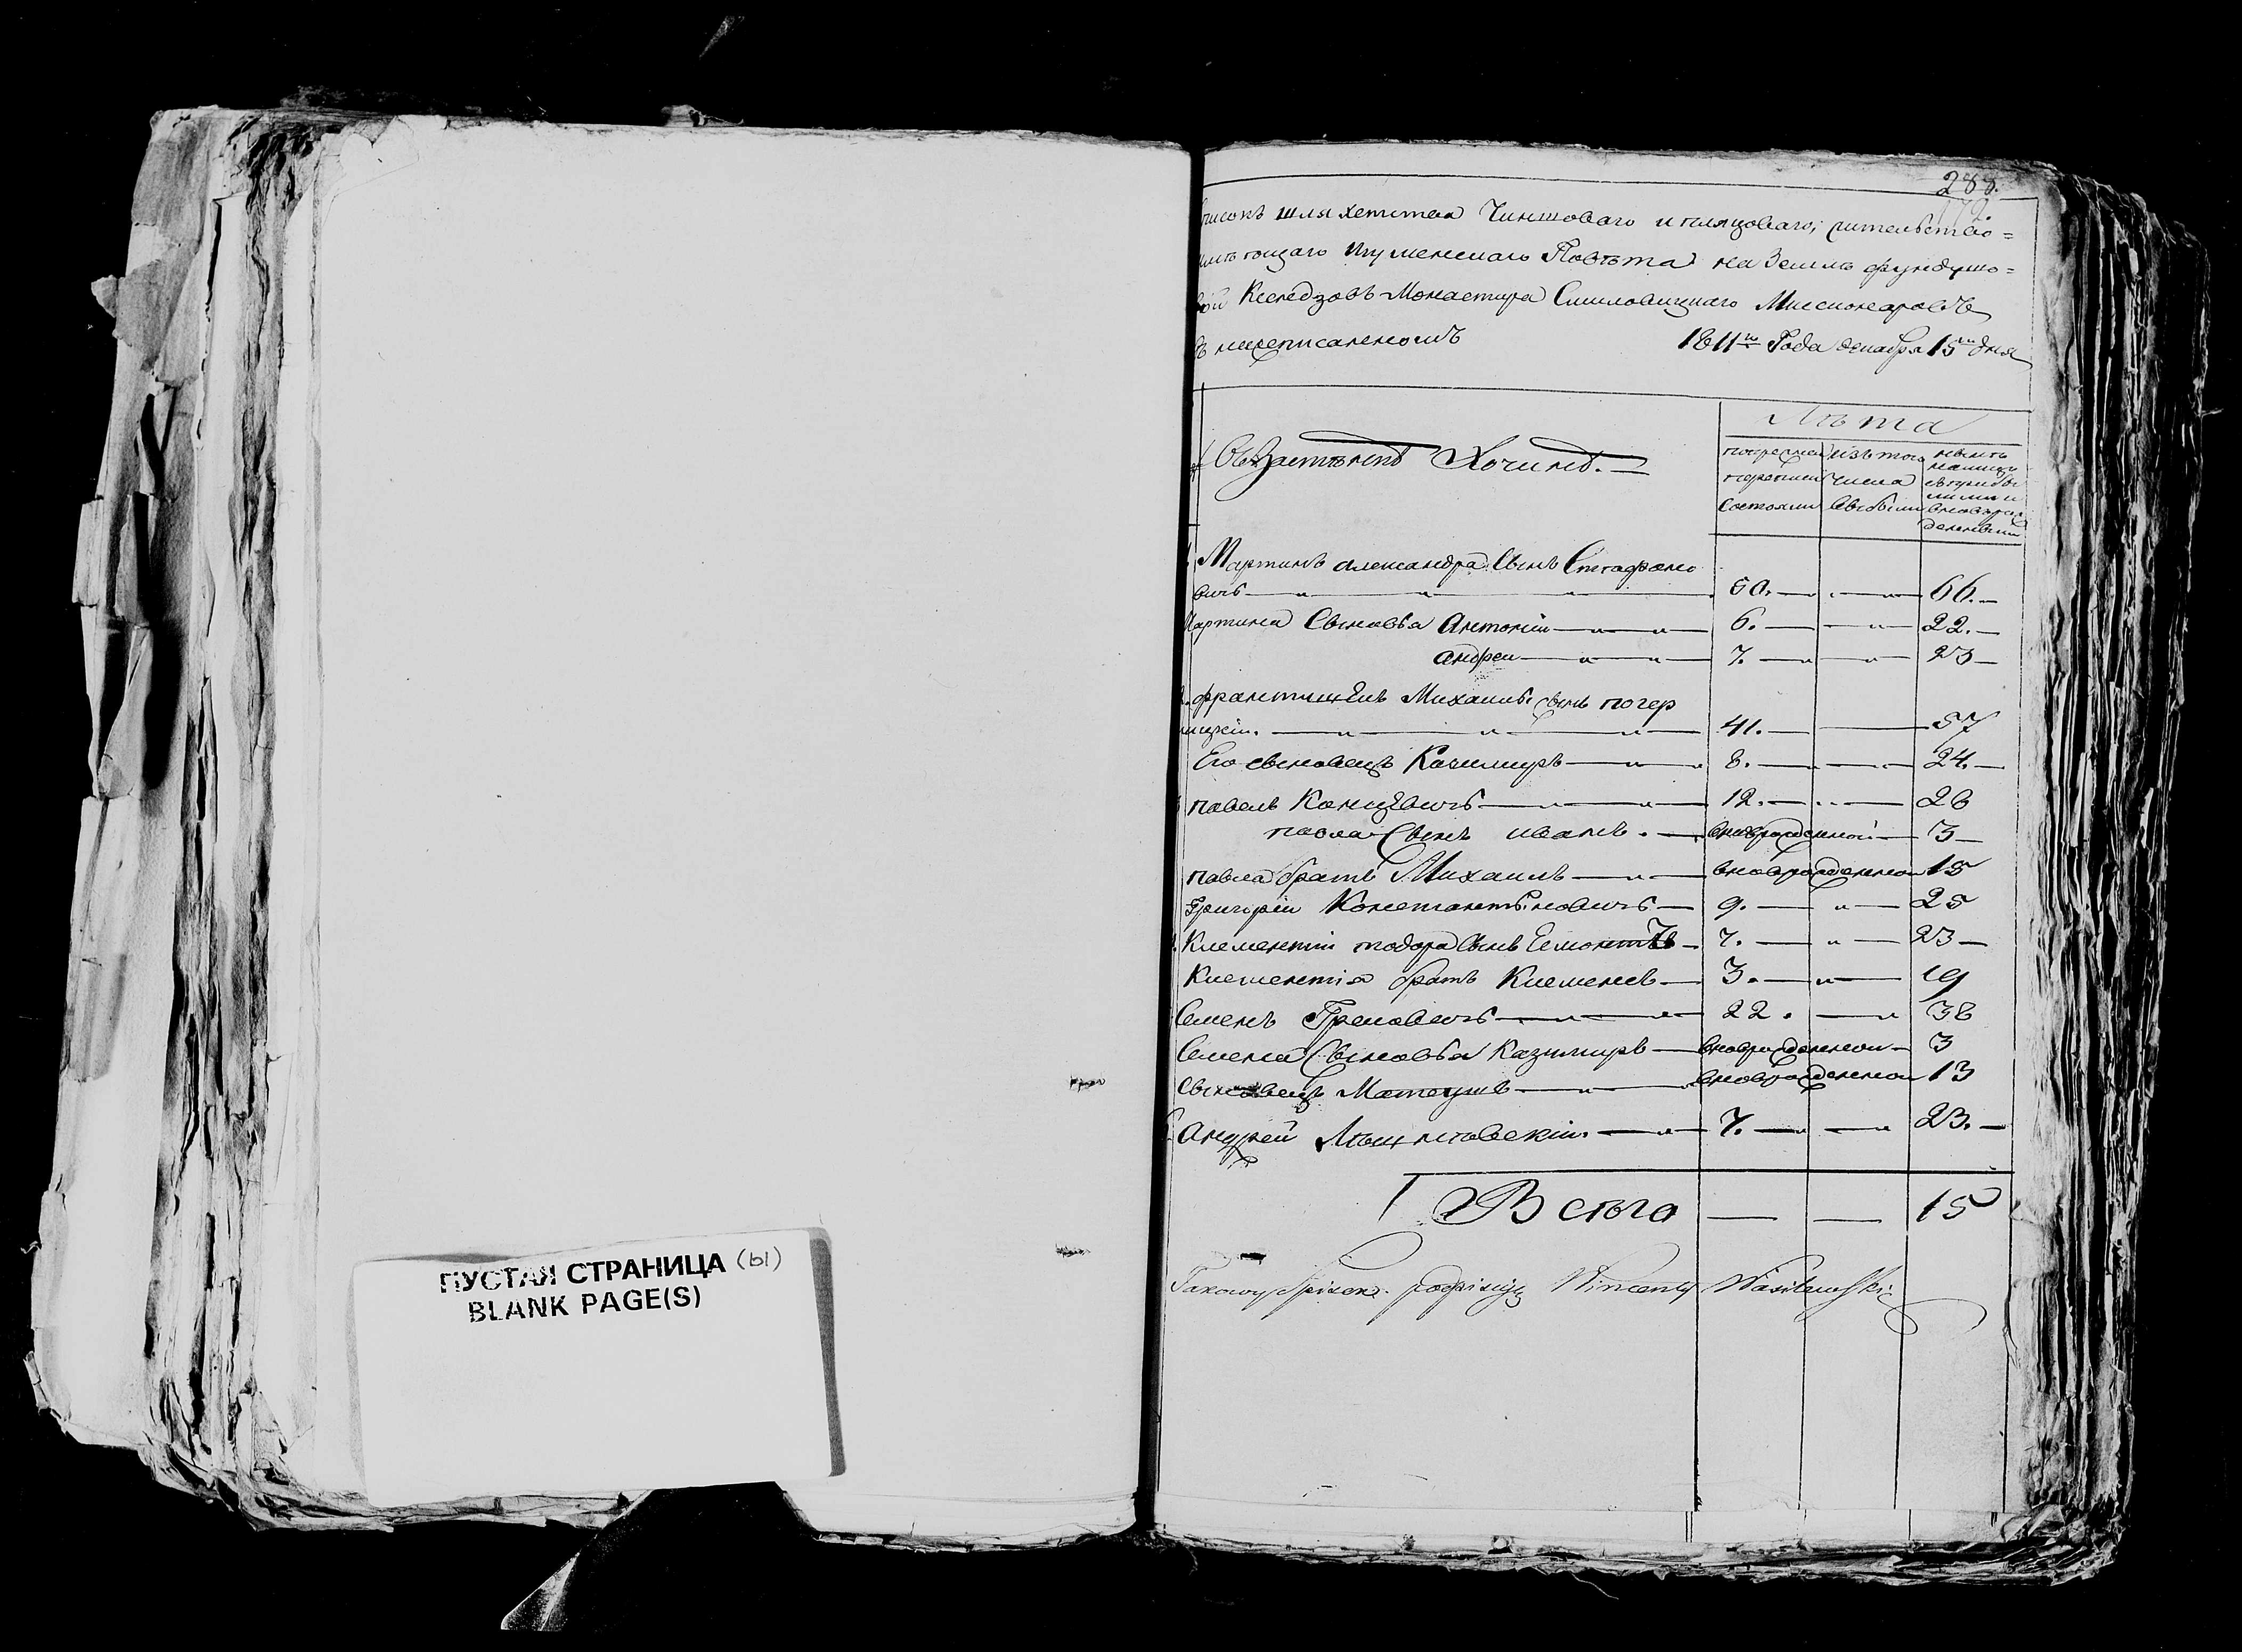 288.
172.
писокъ шляхетства Чиншоваго и пляцоваго, жительство=
имѣющаго Игуменскаго Повѣта на Земли фундушо=
вой Ксендзовъ Монастира Смиловицкаго Миссионаровъ
въ нижеписанномъ 1811го Года декабря 15го дня
Лѣта
Въ Застѣнкѣ Хочинѣ.
по прежней переписи состояли
изъ того числа выбыли
нынѣ на лицо съ прибылыми и вновь рожденными
Мартинъ александра Сынъ Стефано
вичъ 50. 66.
Мартина Сыновья Антоній 6. 22.
андрей 7. 23
францишекъ Михаила сынъ погер
ицкій. 41. 57
Его сыновецъ Казимиръ 8. 24.
павелъ Концевичъ 12. 28
павла Сынъ иванъ. вноврожденной 3
павла братъ Михаилъ вноврожденной 15
Григорій Константиновичъ 9. 25
Клементій тодора Сынъ 7. 23
Клементія братъ Клеменсъ 3. 19
Семенъ Греновичъ 22. 38
Семена Сыновья Казимиръ вноврожденной 3
Сыновецъ Матеушъ вноврожденной 13
Андрей 7. 23.
Всего 15
Takowy Spisek podpisuję Wincenty Wasilewski
ПУСТАЯ СТРАНИЦА (ы)
BLANK PAGE(S)